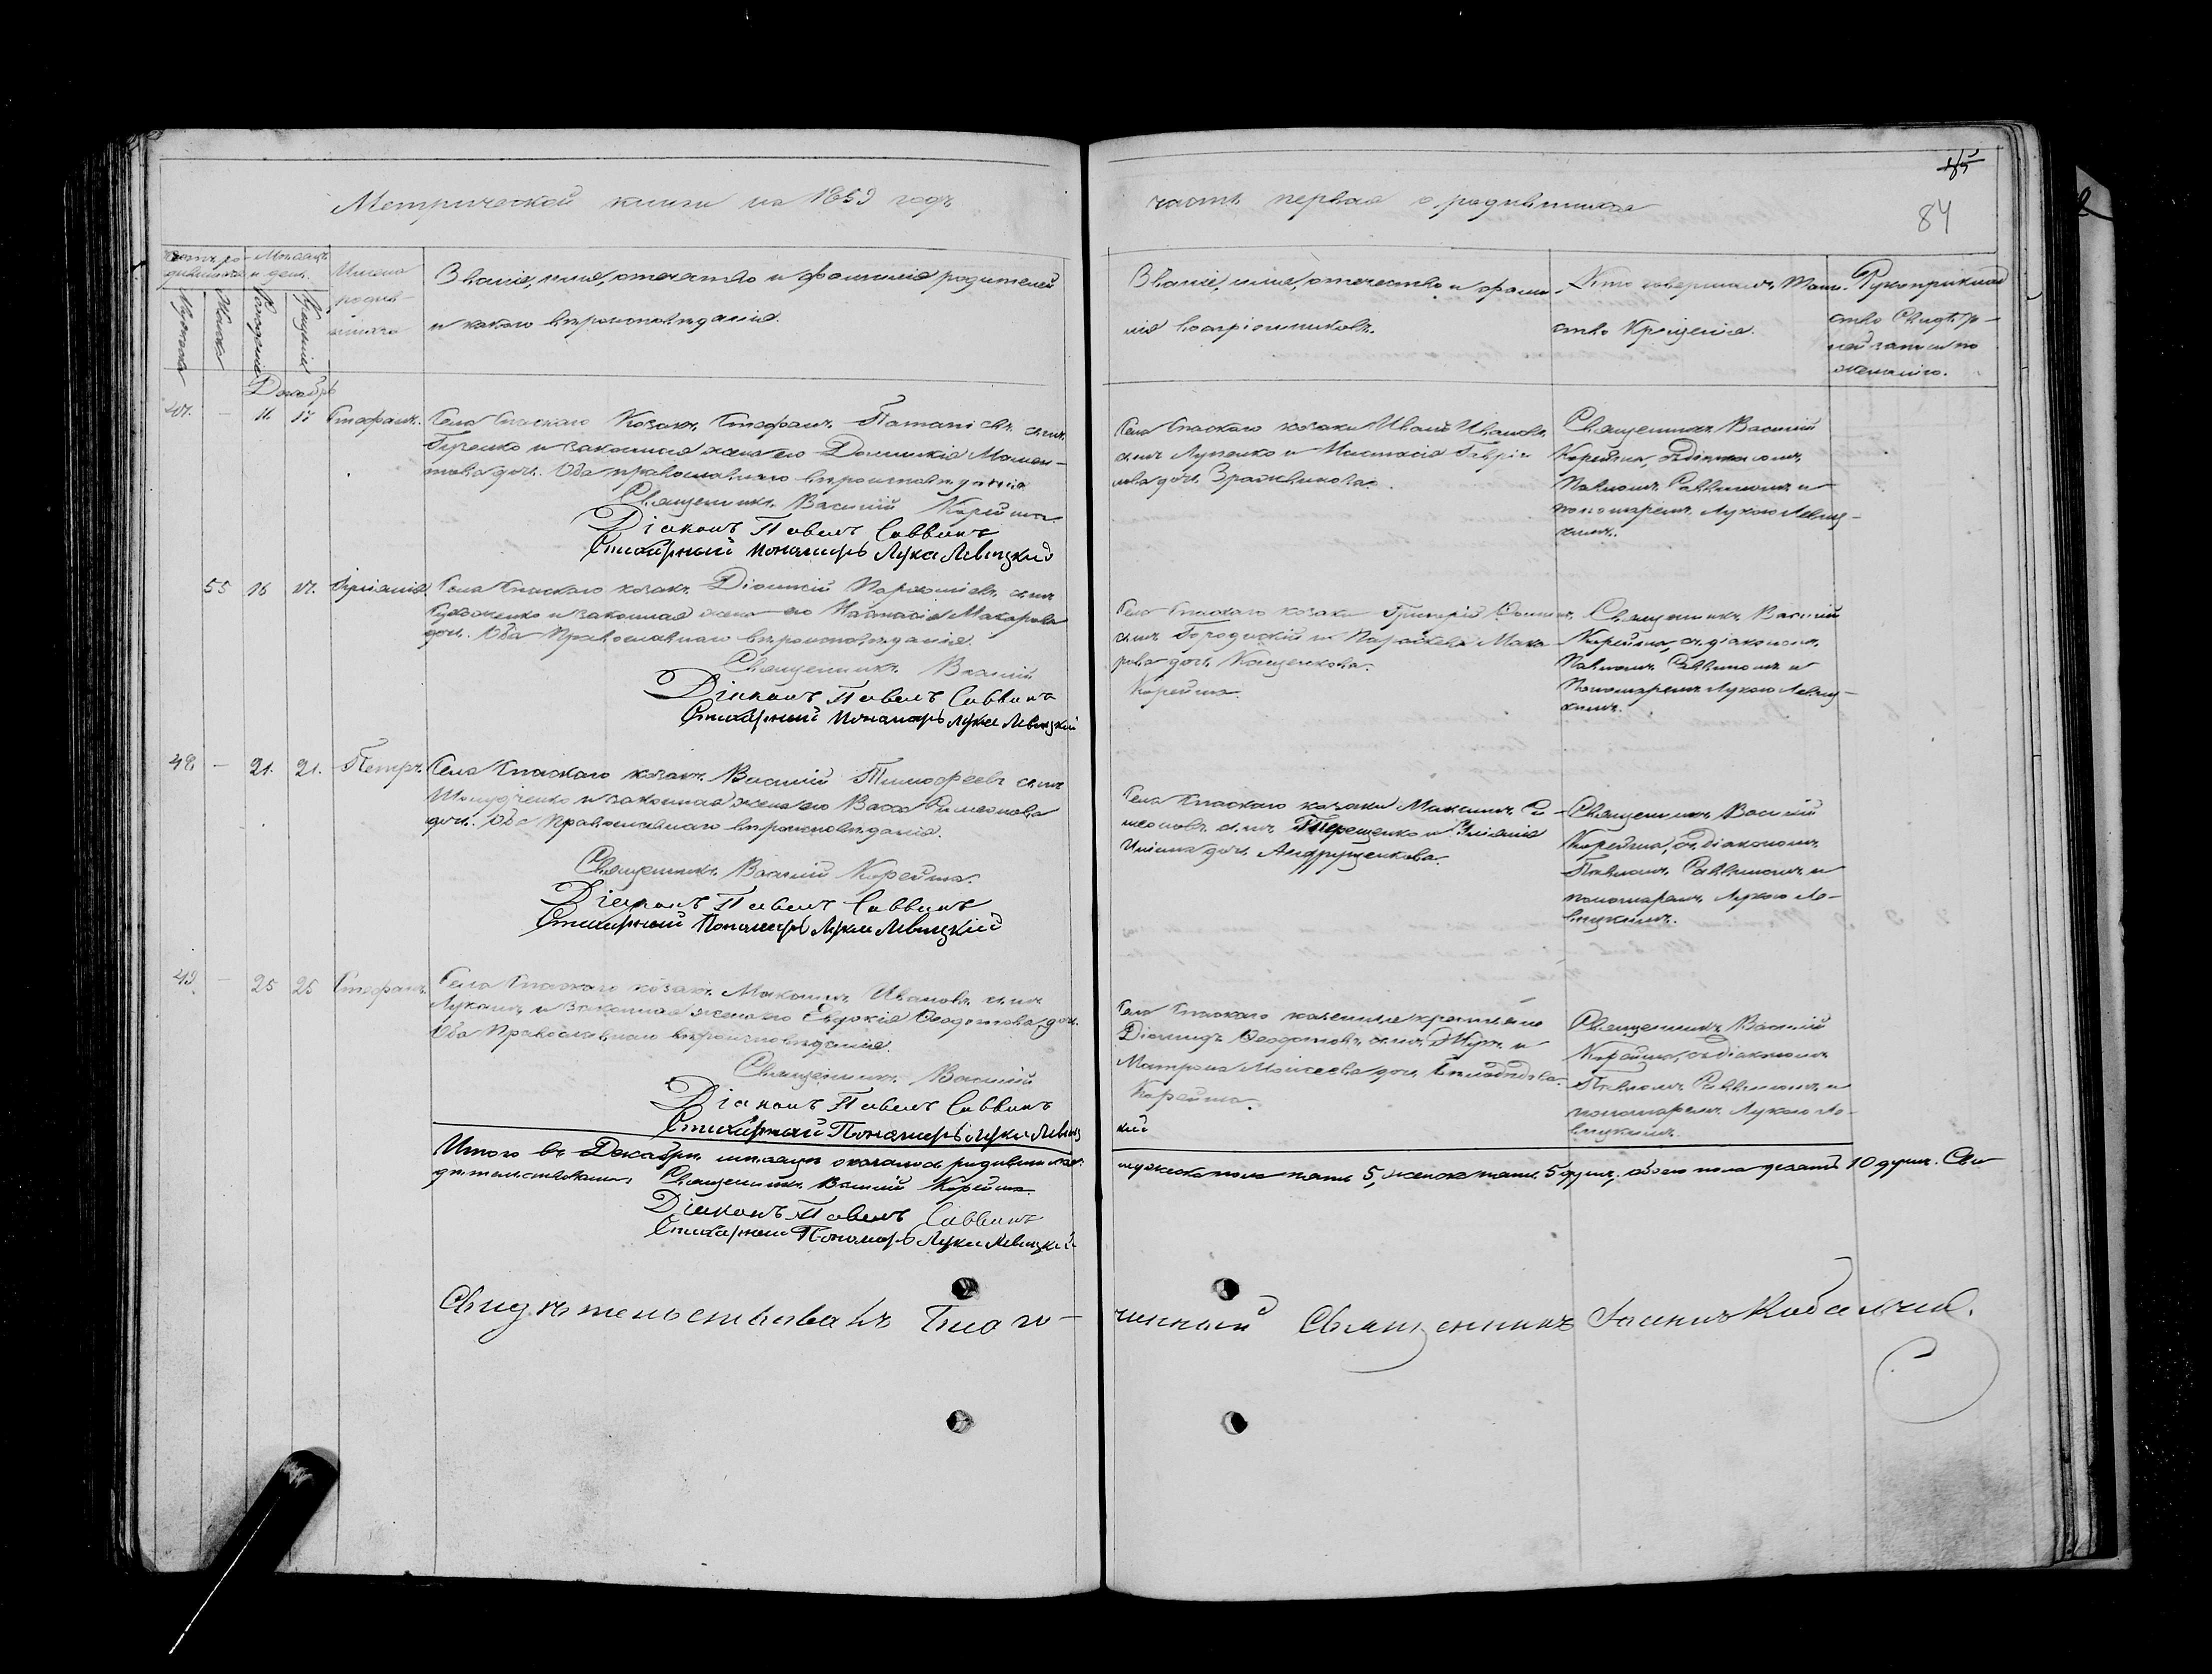 Метрической книги на 1859 годъ
часть первая о родившихся
84
Мѣсяцъ
и день.
Имена
родив-
шихся
Званіе, имя, отчество и фамилія родителей
и какого вѣроисповѣданія.
Званіе, имя, отчество и фами-
лія воспріемниковъ.
Кто совершалъ Таин-
ство Крещенія.
Рукоприклад
ство Свидѣте-
лей записи по
желанію.
Мужеска
Женска
Рожденія
Крещенія
Декабрь
47. - 11. 17 Стефанъ.
Села Спаскаго Козакъ Стефанъ сынъ
и законная жена его Домникія
дочь. Оба православнаго вѣроисповѣданія
Священникъ Василій Корейша.
Діаконъ Павелъ Саввинъ
Стихарный Пономарь Лука Левицкій
Села Спаскаго козаки Иванъ Ивановъ
сынъ Луценко и Анастасія Гаврі-
лова дочь
Священникъ Василій
Корейша, съ діакономъ
Павломъ Саввинымъ и
пономаремъ Лукою Левиц-
кимъ.
55 16 17.
Села Спаскаго козакъ Діонисій сынъ
и законная жена его Макарова
дочь. Оба Православнаго вѣроисповѣданія.
Священникъ Василій
Діаконъ Павелъ Саввинъ
Стихарный Пономарь Лука Левицкій
Села Спаскаго козаки Григорій
сынъ Городискій и Параскева Мака-
рова дочь Кащенкова.
Корейша.
Священникъ Василій
Корейша, съ діакономъ
Павломъ Саввинымъ и
Пономаремъ Лукою Левиц-
кимъ.
48. - 21. 21. Петръ.
Села Спаскаго козакъ Василій Тимофеевъ сынъ
и законная жена его Васса Симеонова
дочь. Оба Православнаго вѣроисповѣданія.
Священникъ Василій Корейша.
Діаконъ Павелъ Саввинъ
Стихарный Пономарь Лука Левицкій
Села Спаскаго козаки Максимъ Си-
меоновъ сынъ Терещенко и Уліанія
дочь Андрущенкова.
Священникъ Василій
Корейша, съ діакономъ
Павломъ Саввинымъ и
пономаремъ Лукою Ле-
вицкимъ.
49. - 25 25 Стефанъ.
Села Спаскаго козакъ Максимъ Ивановъ сынъ
и законная жена его Евдокія Ѳеодотова дочь.
Оба Православнаго вѣроисповѣданія.
Священникъ Василій
Діаконъ Павелъ Саввинъ
Стихарный Пономарь Лука Левиц
Села Спаскаго казенные крестьяне
Діомидъ Ѳеодотовъ сынъ и
Матрона Моисеева дочь
Корейша.
кій
Священникъ Василій
Корейша, съ діакономъ
Павломъ Саввинымъ и
пономаремъ Лукою Ле-
вицкимъ.
Итого въ Декабрѣ мѣсяцѣ оказалось родившихся
мужеска пола пять 5, женска пять 5 душъ, обоего пола десять 10 душъ. Сви-
дѣтельствовали: Священникъ Василій Корейша.
Діаконъ Павелъ Саввинъ
Стихарный Пономарь Лука Левицкій
Свидѣтельствовалъ Благо-
чинный Священникъ